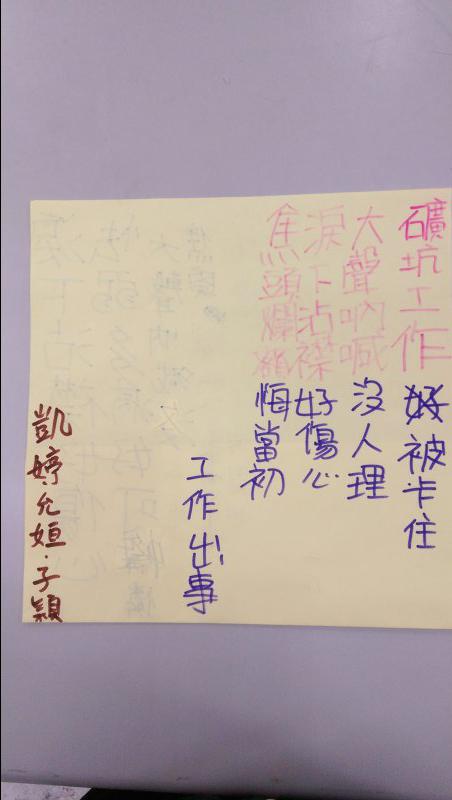 礦坑工作被卡住
大聲吶喊沒人理
淚下沾襟好傷心
焦頭爛額悔當初
工作出事
凱婷允姮.子穎